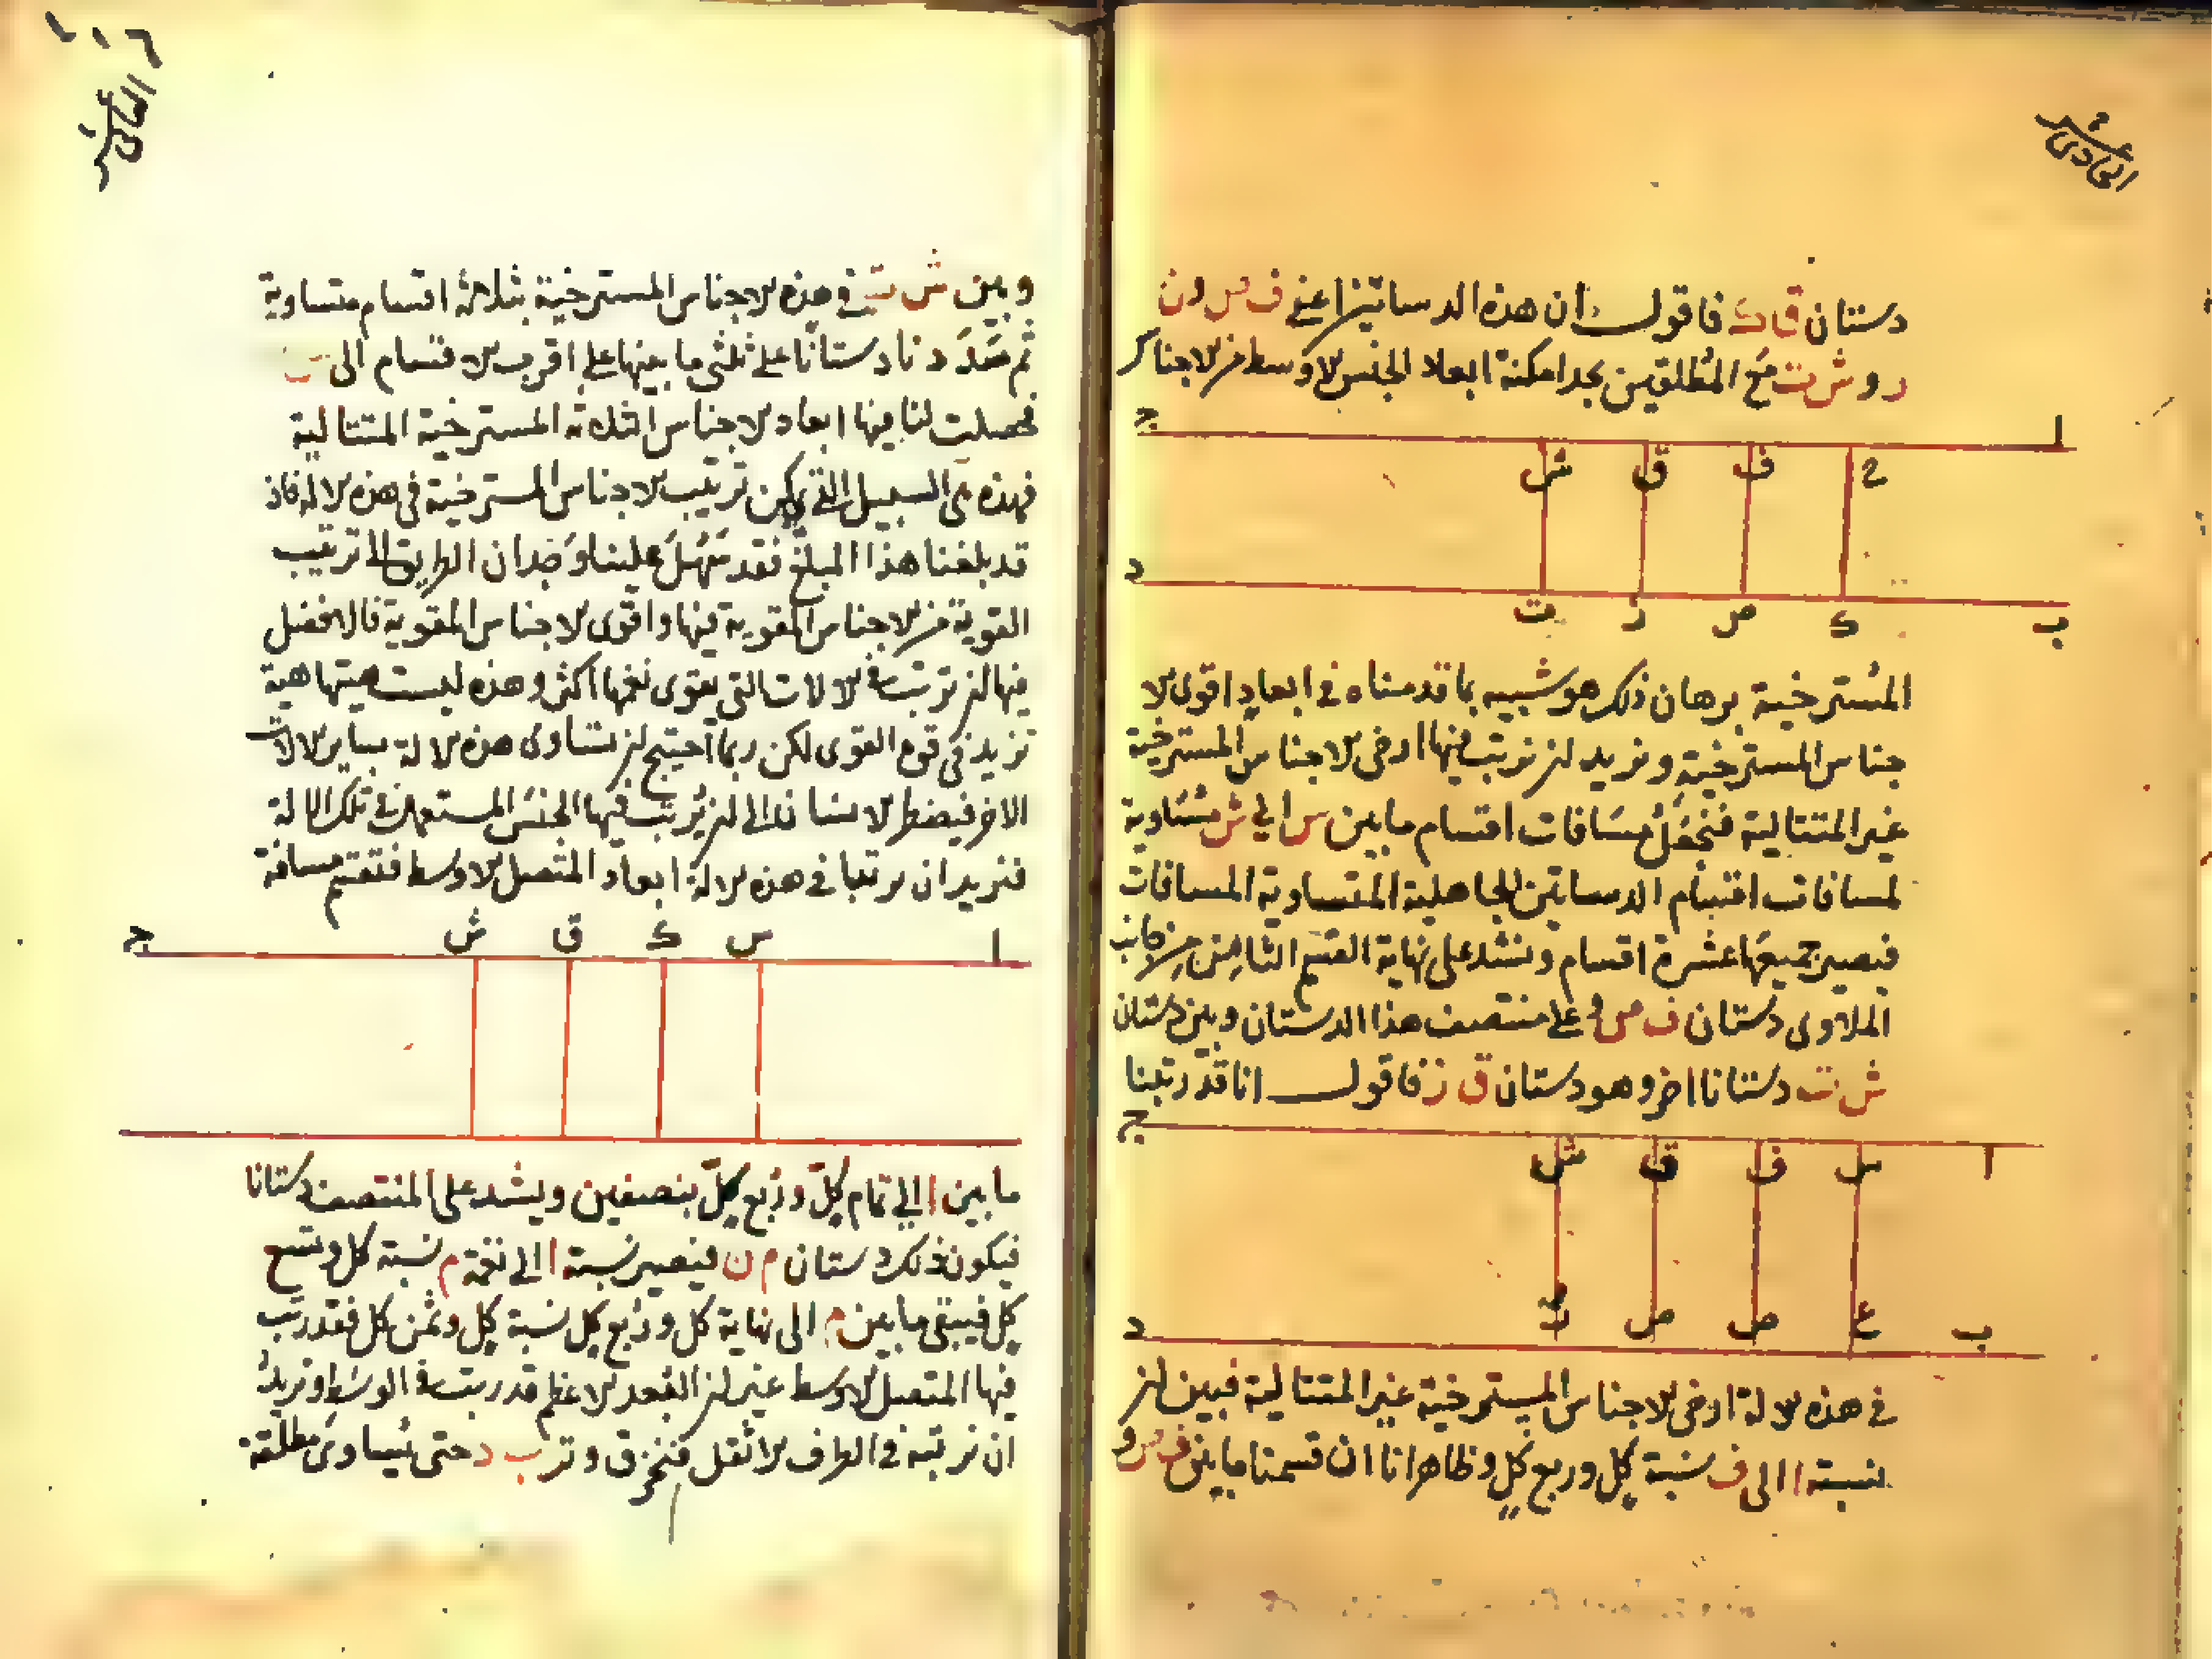 الحادى عشر
دستان ق ك فاقول ان هذه الدساتين اعنى ف ص و ق
ر و ش ت مع المطلقين تحد امكنة ابعاد الجنس الاوسط من الاجناس
ج ا
ش ق ف ح
د
ت ر ص ك ب
المسترخية برهان ذلك هو شبيه بما قدمناه فى ابعاد اقوى الا
جناس المسترخية ونريد ان نرتب فيها ارخى الاجناس المسترخية
غير المتتالية فنجعل مسافات اقسام ما بين س الى ش متساوية
لمسافات اقسام الدساتين الجاهلية المتساوية المسافات
فيصير جميعها عشرة اقسام ونشد على نهاية القسم الثامن من جانب
الملاوى دستان ف ص وعلى منتصف هذا الدستان وبين دستان
ش ت دستانا اخر وهو دستان ق ز فاقول انا قد رتبنا
ج
ش ق ف س ا
ت ص ص ع ب
د
فى هذه الالة ارخى الاجناس المسترخية غير المتتالية فبين ان
نسبة ا الى ف نسبة كل وربع كل وظاهر انا ان قسمنا ما بين ف ص و
الثانى عشر
وبين ش ت فى هذه الاجناس المسترخية بثلاثة اقسام متساوية
ثم شددنا دستانا على ثلثى ما بينها على اقرب الاقسام الى ت
فحصلت لنا فيها ابعاد الاجناس الثلاثة المسترخية المتتالية
فهذه هى السبيل التى يمكن ترتيب الاجناس المسترخية فى هذه الالة فاذ
قد بلغنا هذا المبلغ فقد سهل علينا وجدان الطريق الى ترتيب
القوية من الاجناس المقوية فيها واقوى الاجناس المقوية فالافضل
فيها ان ترتب فى الالات التى يقوى نغمها اكثر وهذه ليست هيتها هية
تزيد فى قوة القوى لكن ربما احتيج ان تساوى هذه الالة بساير الالات
الاخر فيضطر الانسان الى ان يرتب فيها الجنس المستعمل فى تلك الالة
فنريد ان نرتبا فى هذه الالة ابعاد المتصل الاوسط فنقسم مسافة
ج ش ق ك س ا
ما بين ا الى تمام كل وربع كل بنصفين ويشد على المنتصف دستانا
فيكون ذلك دستان م ن فيصير نسبة ا الى نغمة م نسبة كل وتسع
كل فيبقى ما بين م الى نهاية كل وربع كل نسبة كل وثمن كل فقد رتب
فيها المتصل الاوسط غير ان البعد الاعظم قد رتب فى الوسط ونريد
ان نرتبه فى الطرف الاثقل فنحزق وتر ب د حتى يساوى مطلقة